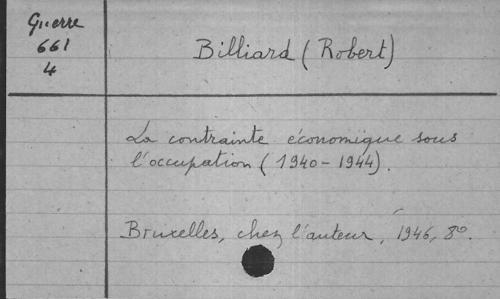 Guerre
661
4
Billiard (Robert)
La contrainte économique sous
l'occupation (1940-1944).
Bruxelles, chez l'auteur, 1946, 8º.